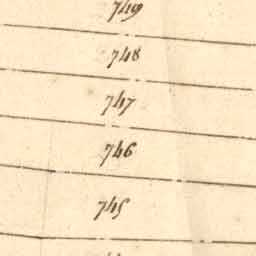 749
748
747
746
745